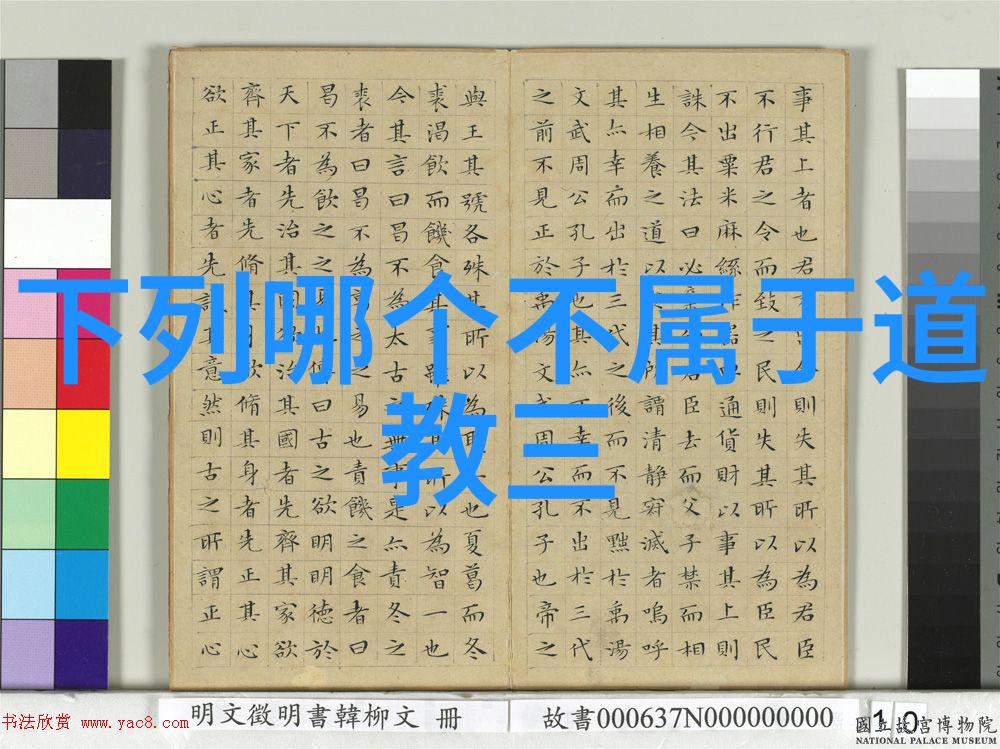 下列哪个不属于道
教三
事其上者也君令則失其所以為君臣
不行君之令而致之民則失其所以為臣民
不出粟米麻絲作器皿通貨財以事其上則
誅今其法曰必棄而君臣去而父子禁而相
生相養之道以求其所謂清靜寂滅者嗚呼
其亦幸而出於三代之後而不見黜於禹湯
文武周公孔子也其亦不幸而不出於三代
之前不見正於禹湯文武周公孔子也帝之
與王其號各殊其所以為聖一也夏葛而冬
裘渴飲而饑食其事雖殊其所以為智一也
今其言曰曷不為太古之無事是亦責冬之
裘者曰曷不為葛之之易也責饑之食者曰
曷不為飲之之易也傳曰古之欲明明德於
天下者先治其國欲治其國者先齊其家欲
齊其家者先脩其身欲脩其身者先正其心
欲正其心者先誠其意然則古之所謂正心
明文徵明書韓柳文 冊
故書000637N000000000
10
書法欣賞 www.yac8.com
國立故宮博物院
NATIONAL PALACE MUSEUM